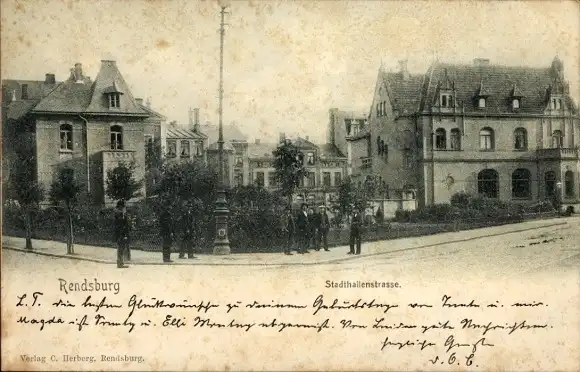 Rendsburg
Stadthallenstrasse.
L. T. die besten Glückwünsche zu deinem Geburtstage von Tante u. mir.
Magda ist Sonntag u. Elli Montag abgereist. Von beiden gute Nachrichten.
herzliche Grüße
Verlag C. Herberg, Rendsburg.